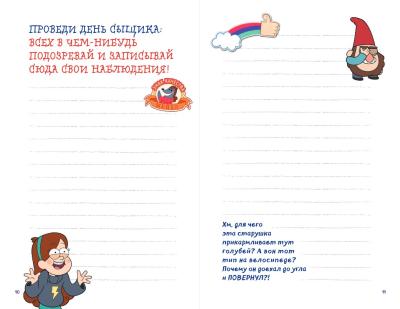 ПРОВЕДИ ДЕНЬ СЫЩИКА:
ВСЕХ В ЧЕМ-НИБУДЬ
ПОДОЗРЕВАЙ И ЗАПИСЫВАЙ
СЮДА СВОИ НАБЛЮДЕНИЯ!
Хм, для чего
эта старушка
прикармливает тут
голубей? А вон тот
тип на велосипеде?
Почему он доехал до угла
и ПОВЕРНУЛ?!
90
91